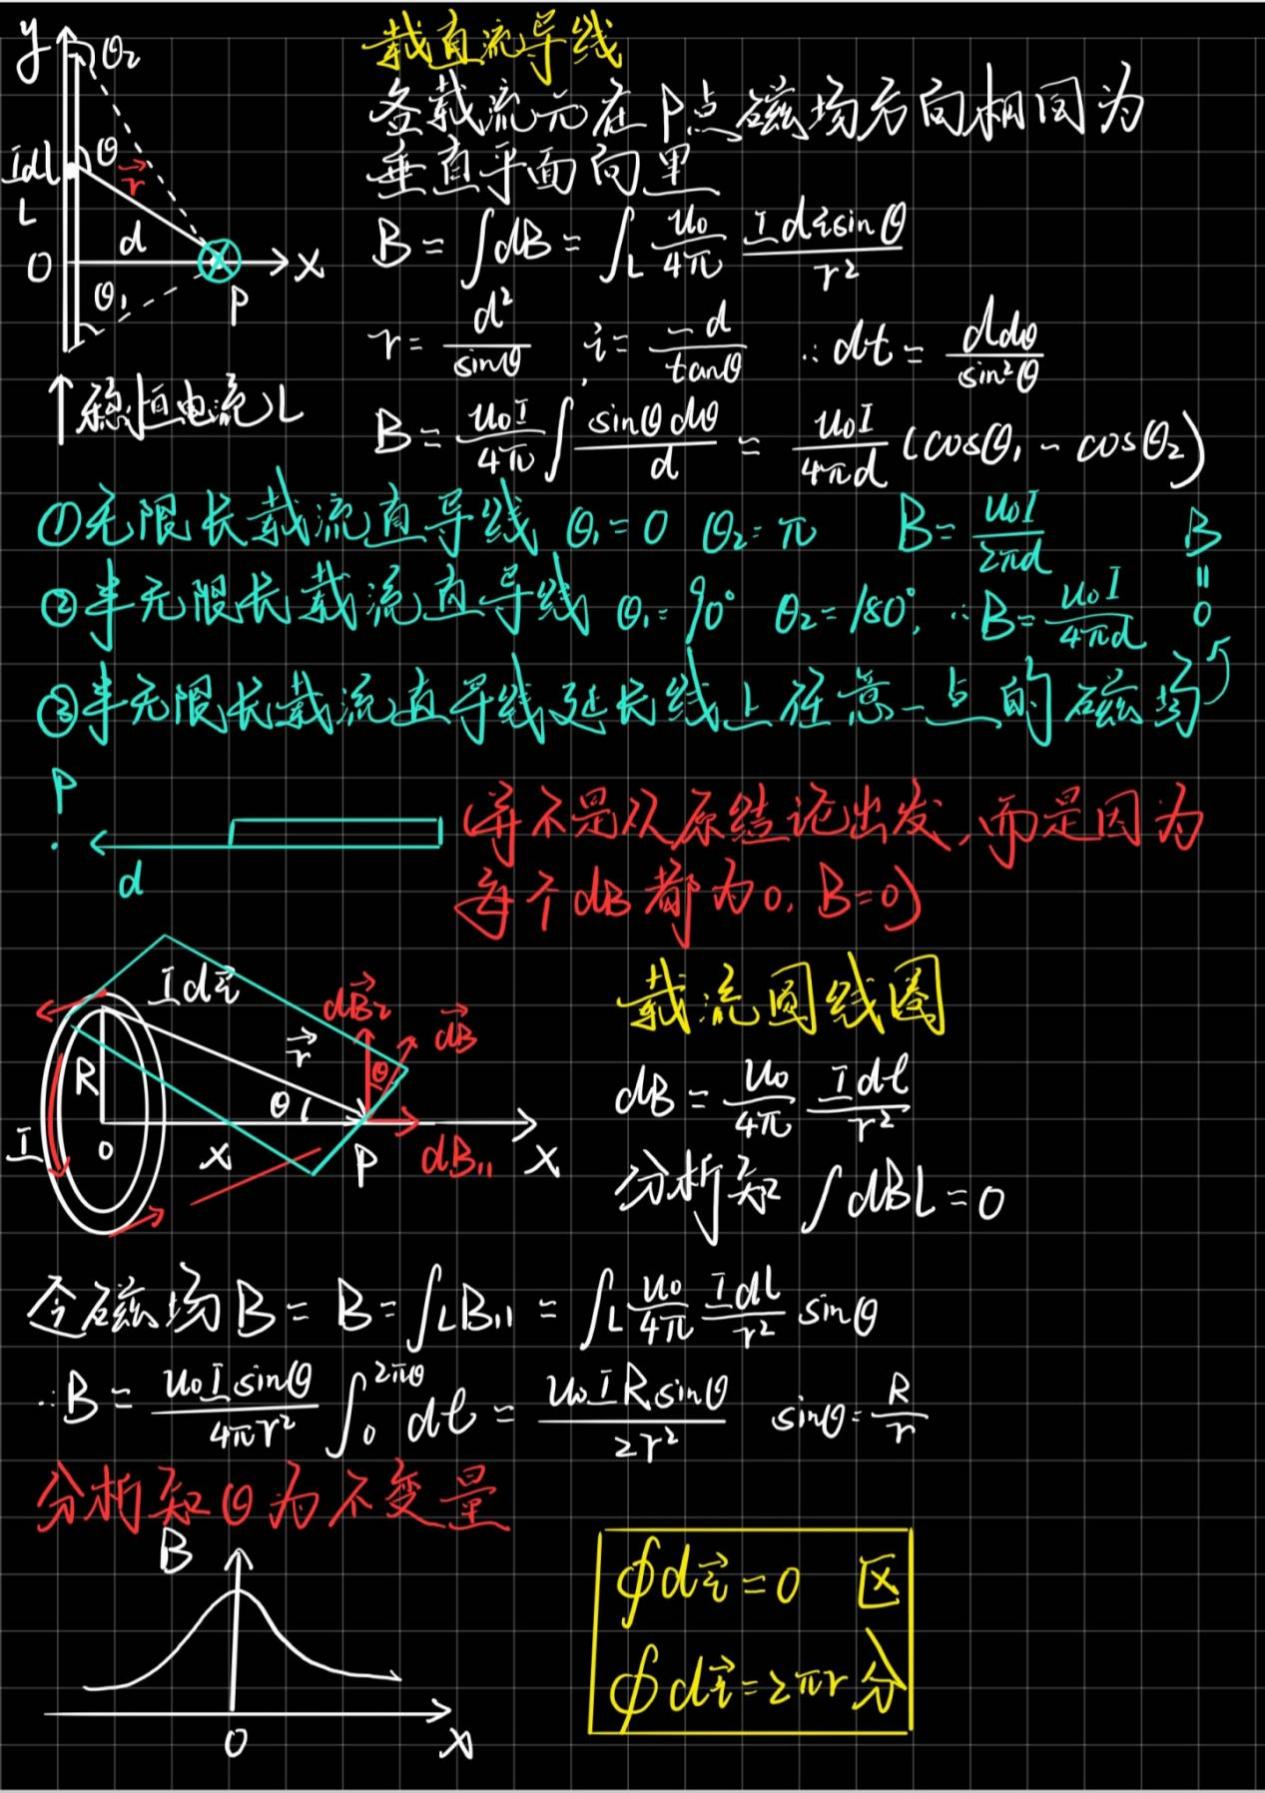 载直流导线
各载流元在P点磁场方向相同为
垂直平面向里
y
θ₂
Idl
θ
r⃗
L
d
O
x
θ₁
P
↑稳恒电流L
B = ∫dB = ∫_L u₀/4π Idl⃗sinθ/r²
r = d²/sinθ , l = -d/tanθ ∴ dt = ddθ/sin²θ
B = u₀I/4π ∫ sinθdθ/d = u₀I/4πd (cosθ₁ - cosθ₂)
①无限长载流直导线 θ₁=0 θ₂=π B = u₀I/2πd
②半无限长载流直导线 θ₁=90° θ₂=180°, ∴B = u₀I/4πd
③半无限长载流直导线延长线上任意一点的磁场
B = 0
P
d
(并不是从原结论出发,而是因为
每个dB都为0, B=0)
载流圆线圈
Idl⃗
dB⃗₂
dB⃗
r⃗
θ
R
θ
I
O
x
P
dB₁₁
x
dB = u₀/4π Idl/r²
分析知 ∫dBL = 0
令磁场B = B = ∫LB₁₁ = ∫_L u₀/4π Idl/r² sinθ
∴B = u₀Isinθ/4πr² ∫₀^2πθ dl = u₀IRsinθ/2r² sinθ = R/r
分析知θ为不变量
B
O
x
∮dl⃗ = 0 区
∮dl⃗ = 2πr 分